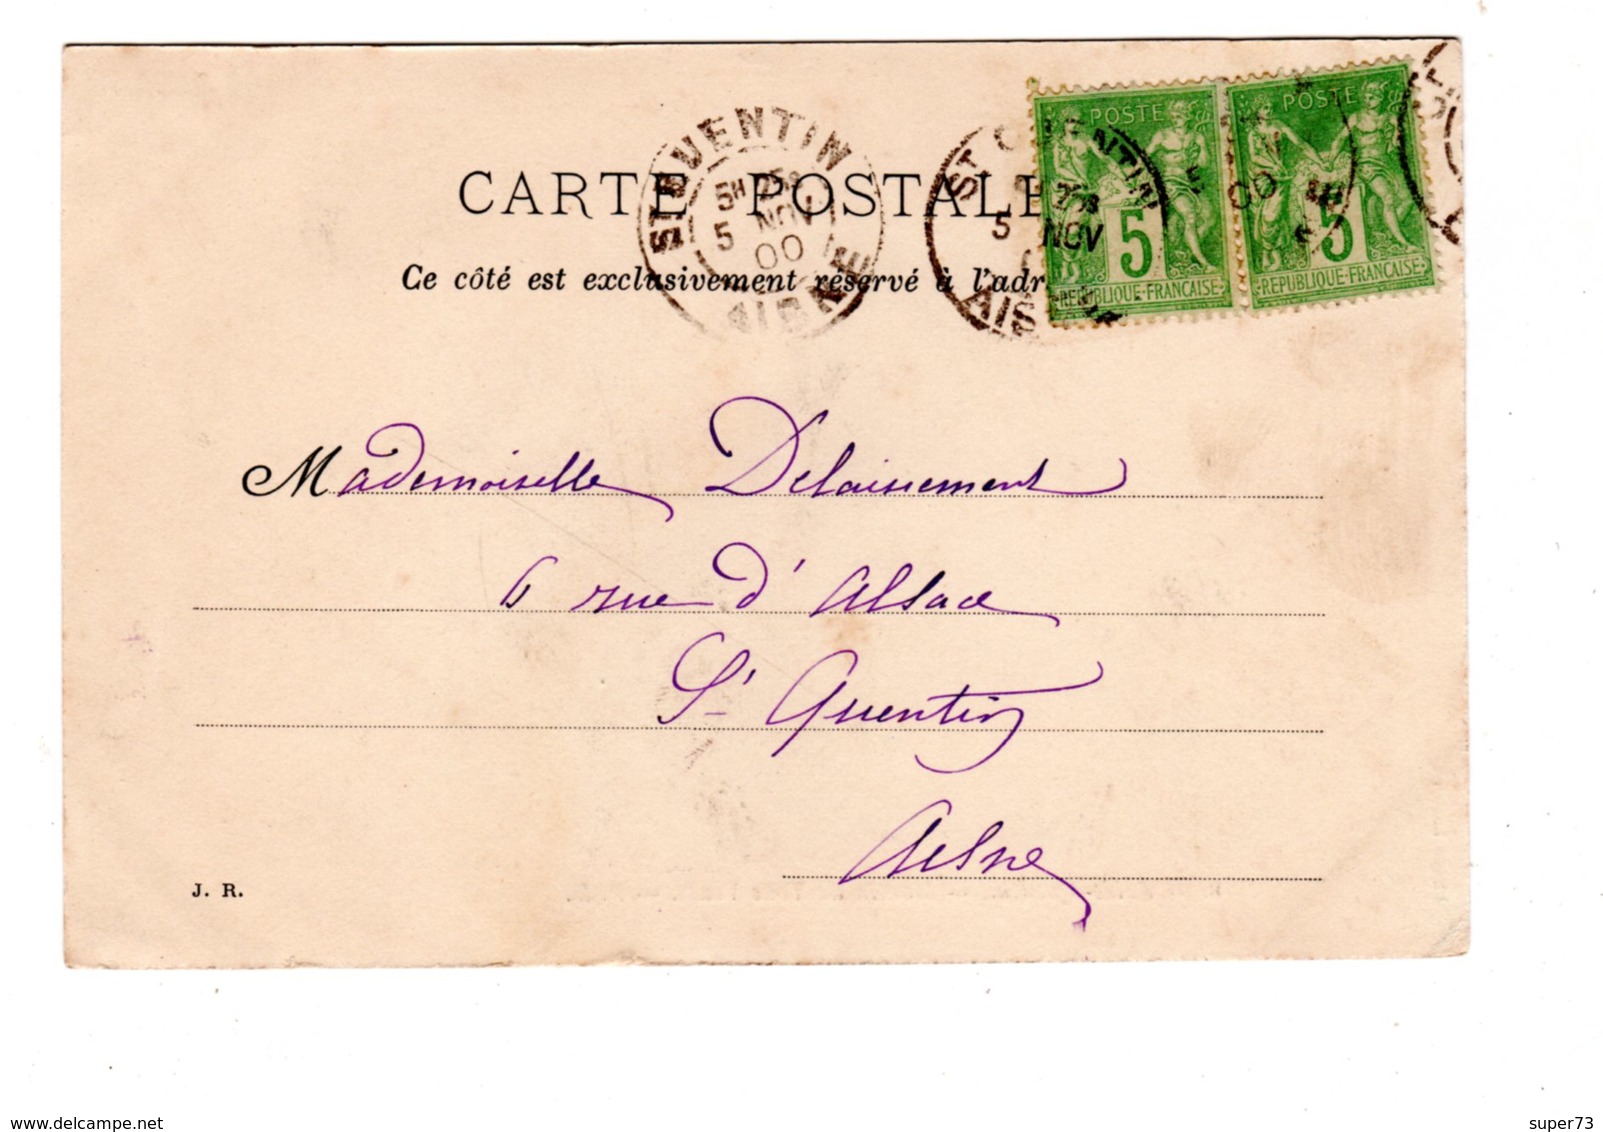 CARTE POSTALE
Ce côté est exclusivement réservé à l'adr
ST QUENTIN
5H 25S
5 NOV
00
AISNE
ST QUENTIN
5 NOV
AISNE
POSTE
5
REPUBLIQUE-FRANCAISE
POSTE
5
REPUBLIQUE-FRANCAISE
Mademoiselle Delaissement
6 rue d'Alsace
St Quentin
Aisne
J. R.
delcampe.net
super73